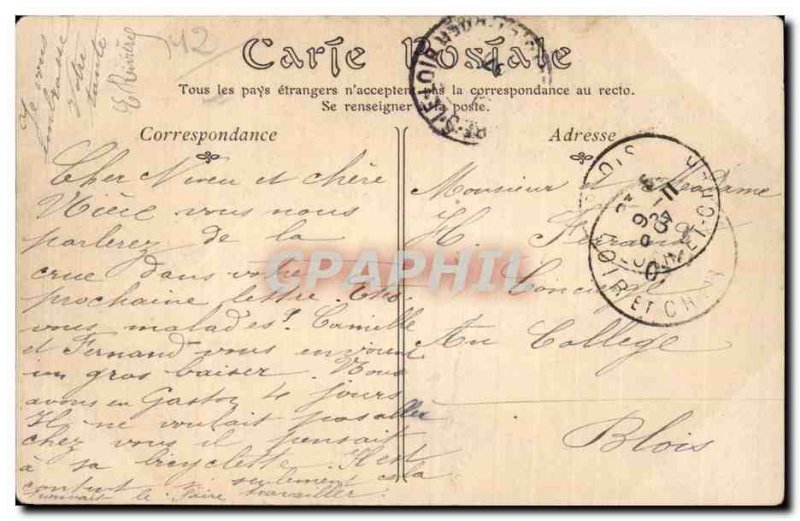 Je vous
embrasse
Votre
tante
E Rivière
42
Carte Postale
Tous les pays étrangers n'acceptent pas la correspondance au recto.
Se renseigner à la poste.
Correspondance
Adresse
Cher Neveu et chère
Nièce vous nous
parlerez de la
crue dans votre
prochaine lettre.
vous malades? Camille
et Fernand vous envoient
un gros baiser. Nous
avons eu Gaston 4 jours
Il ne voulait pas aller
chez vous il pensait
à sa bicyclette. Il est
content si seulement cela
pouvait le faire travailler.
Monsieur et Madame
H.
Concierge
Au Collège
Blois
LOIR ET CHER
CPAPHIL